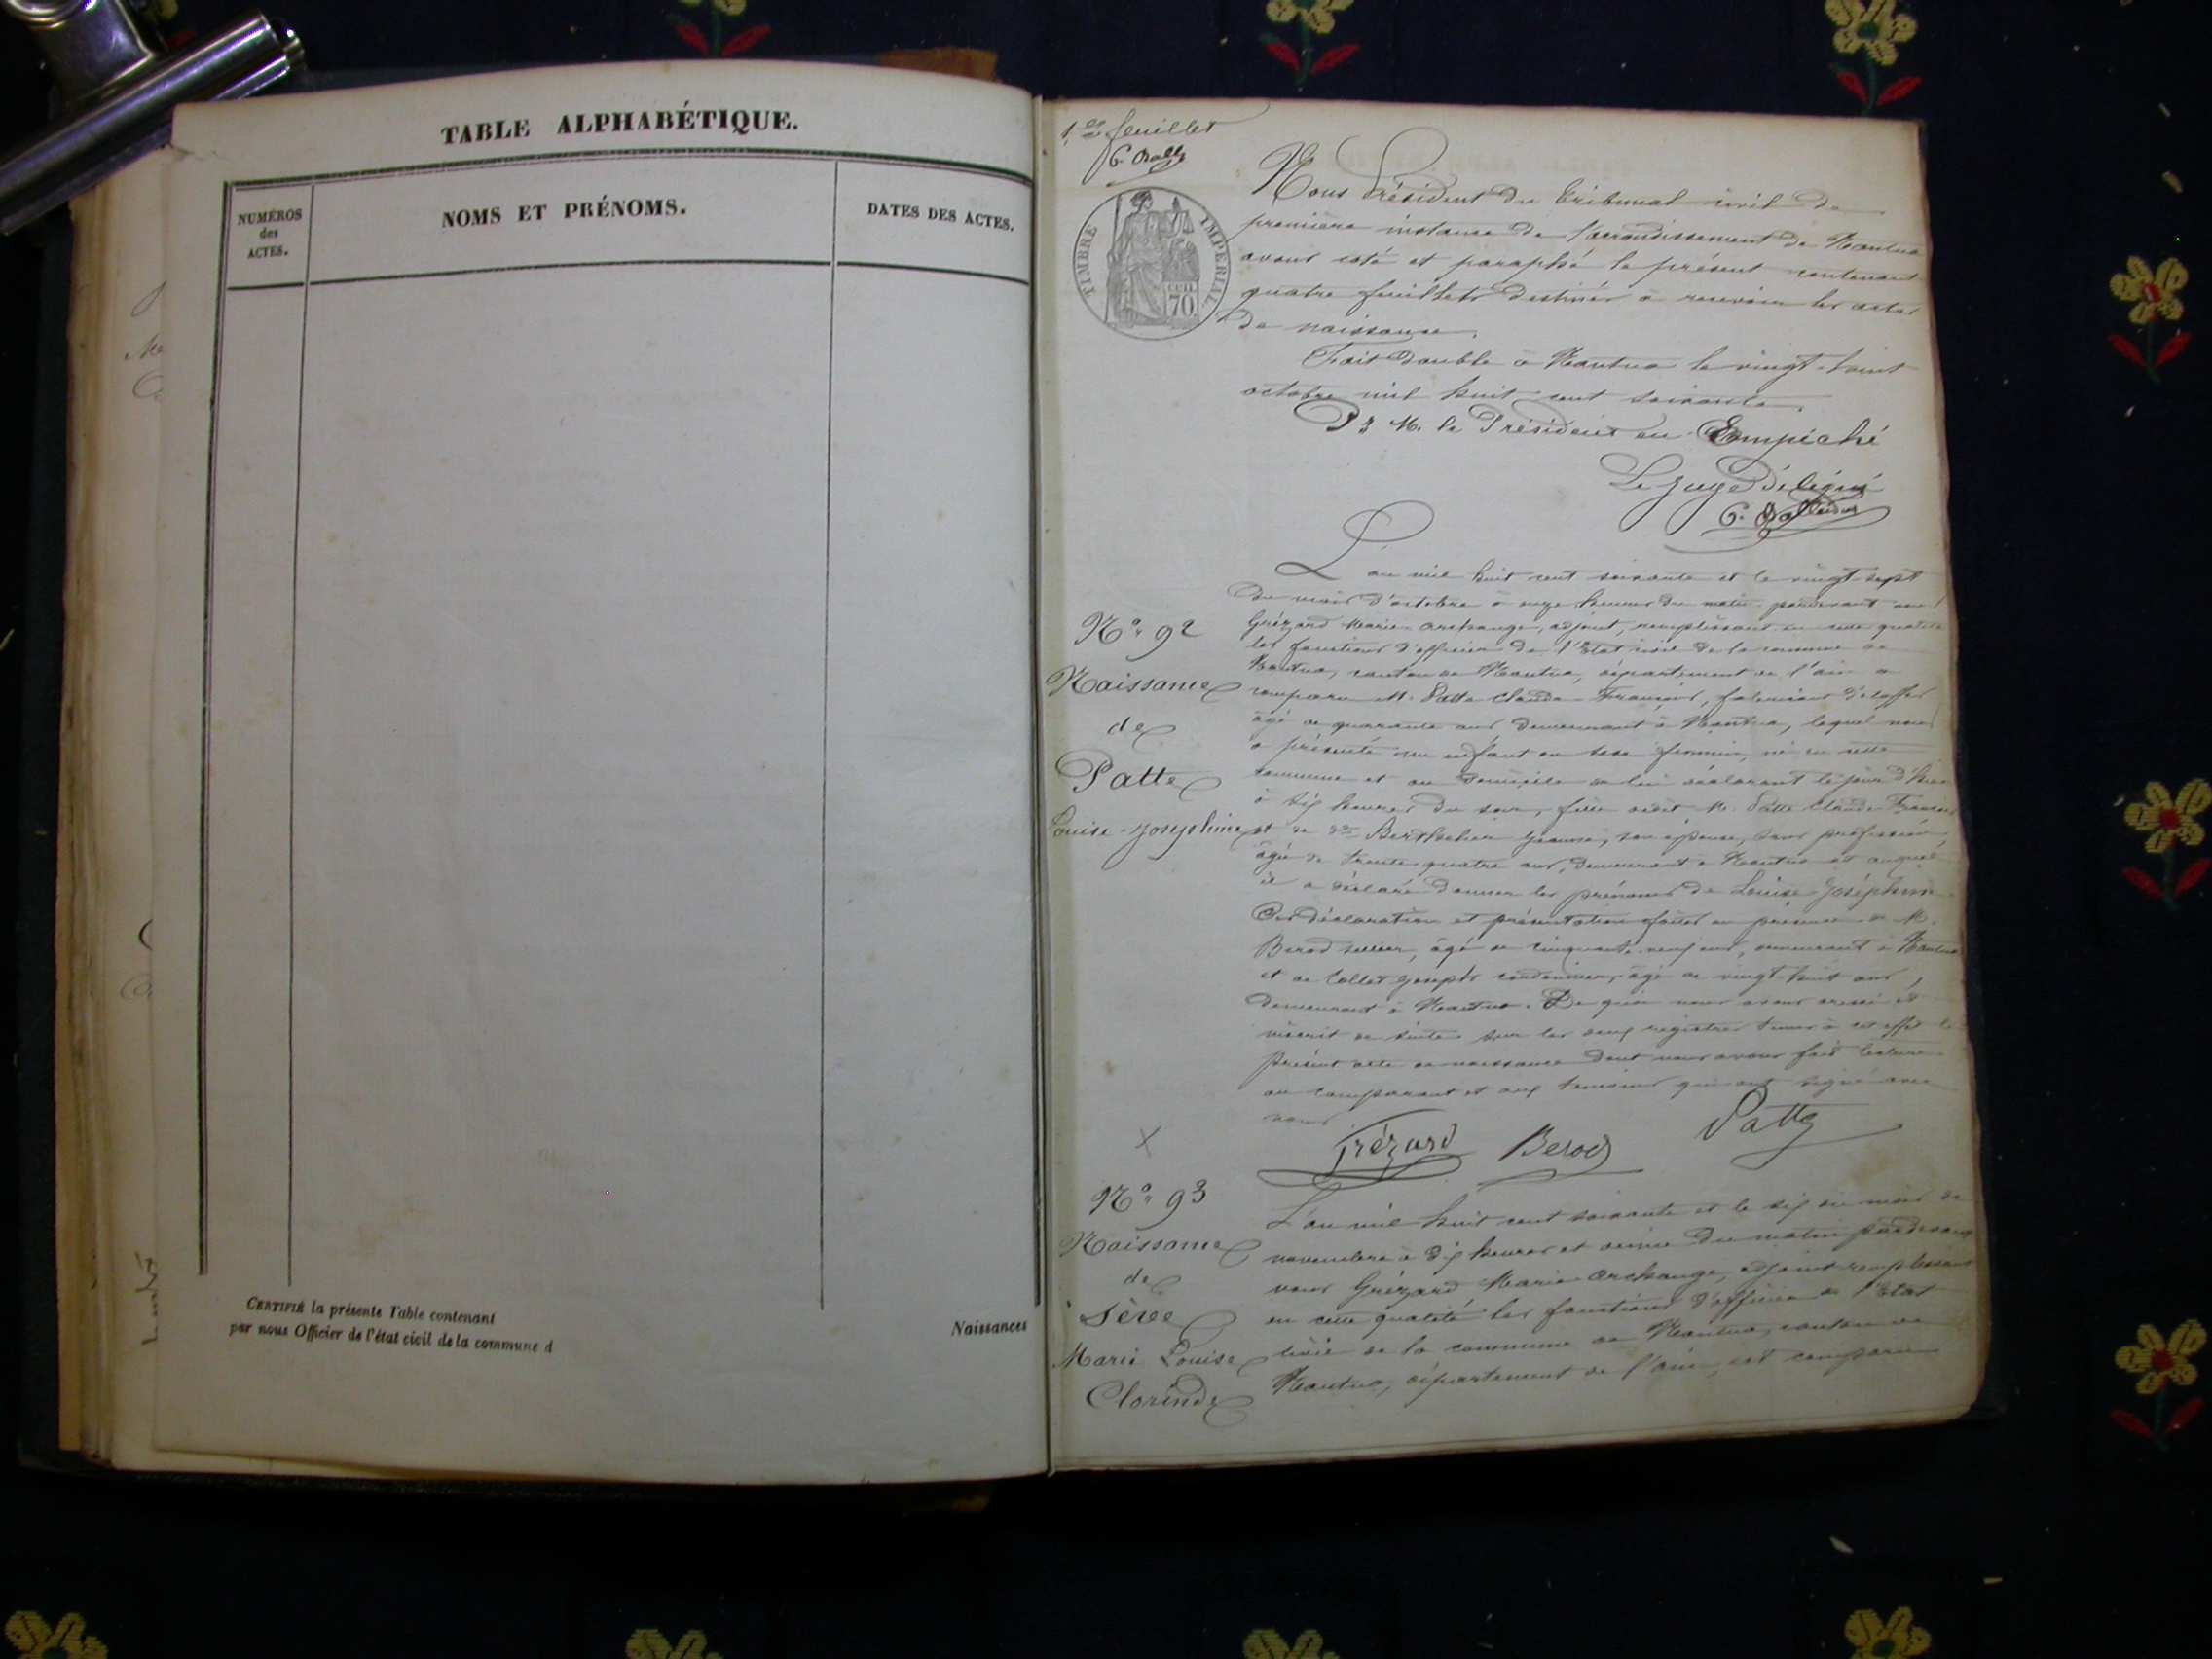 TABLE ALPHABÉTIQUE.
NUMÉROS
des
ACTES.
NOMS ET PRÉNOMS.
DATES DES ACTES.
CERTIFIÉ la présente Table contenant
Naissances
par nous Officier de l'état civil de la commune d
1er feuillet
TIMBRE IMPERIAL
CENT.
70.
Nous Président du tribunal civil de
première instance de l'arrondissement de Nantua
avons coté et paraphé le présent contenant
quatre feuillets destinés à recevoir les actes
de naissance.
Fait double à Nantua le vingt-
octobre mil huit cent soixante.
Pr M. le Président en Empêché
Le Juge Délégué
No. 92
Naissance
de
Patte
Louise-Joséphine
L'an mil huit cent soixante et le vingt-sept
du mois d'octobre à onze heures du matin, pardevant nous
Grézard Marie-Archange, adjoint, remplissant en cette qualité
les fonctions d'officier de l'Etat civil de la commune de
Nantua, canton de Nantua, département de l'ain a
comparu M. Patte Claude-François, fabricant d'étoffes
âgé de quarante ans, demeurant à Nantua, lequel nous
a présenté un enfant du sexe féminin, né en cette
commune et au domicile de lui déclarant le jour d'hier
à six heures du soir, fille dudit M. Patte Claude-François
et de de Berthelier, son épouse, sans profession,
âgée de trente-quatre ans, demeurant à Nantua et auquel
il a déclaré donner les prénoms de Louise-Joséphine
Ces déclaration et présentation faites en présence de M.
Berod sellier, âgé de cinquante-neuf ans, demeurant à Nantua
et de Collet Joseph cordonnier, âgé de vingt-huit ans,
demeurant à Nantua. De quoi nous avons dressé et
inscrit de suite sur les deux registres tenus à cet effet le
présent acte de naissance dont nous avons fait lecture
au comparant et aux témoins qui ont signé avec
nous
Grézard Berod Patte
No. 93
Naissance
de
Sève
Marie Louise
Clorinde
L'an mil huit cent soixante et le six du mois de
novembre à dix heures et demie du matin pardevant
nous Grézard Marie-Archange, adjoint remplissant
en cette qualité les fonctions d'officier de l'Etat
civil de la commune de Nantua, canton de
Nantua, département de l'ain, est comparu